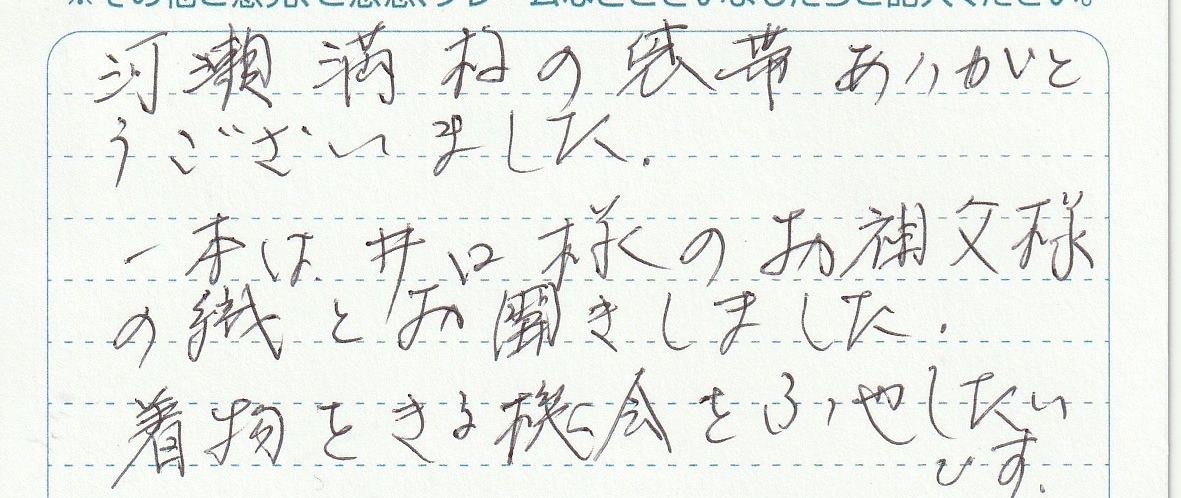 ※その他ご感想、ご意見、クレームなどございましたらご記入ください。
河瀬満の袋帯ありがと
うございました.
一本は井口様のお父様
の織とお聞きしました.
着物をきる機会をふやしたい
です.